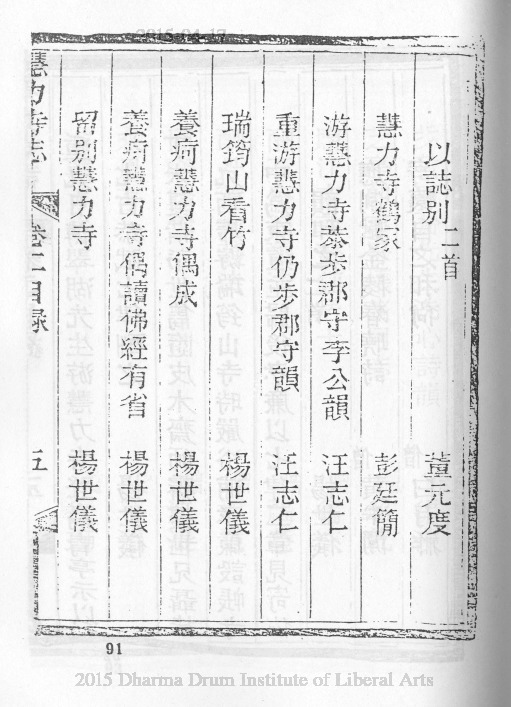 以誌别 二首 董元度
慧力寺鶴冢 彭廷簡
游慧力寺恭步郡守李公韻 汪志仁
重游慧力寺仍步郡守韻 汪志仁
瑞筠山看竹 楊世儀
養疴慧力寺偶成 楊世儀
養疴慧力寺偶讀佛經有省 楊世儀
留别慧力寺 楊世儀
慧力寺志 卷二目録 五
91
2015 Dharma Drum Institute of Liberal Arts